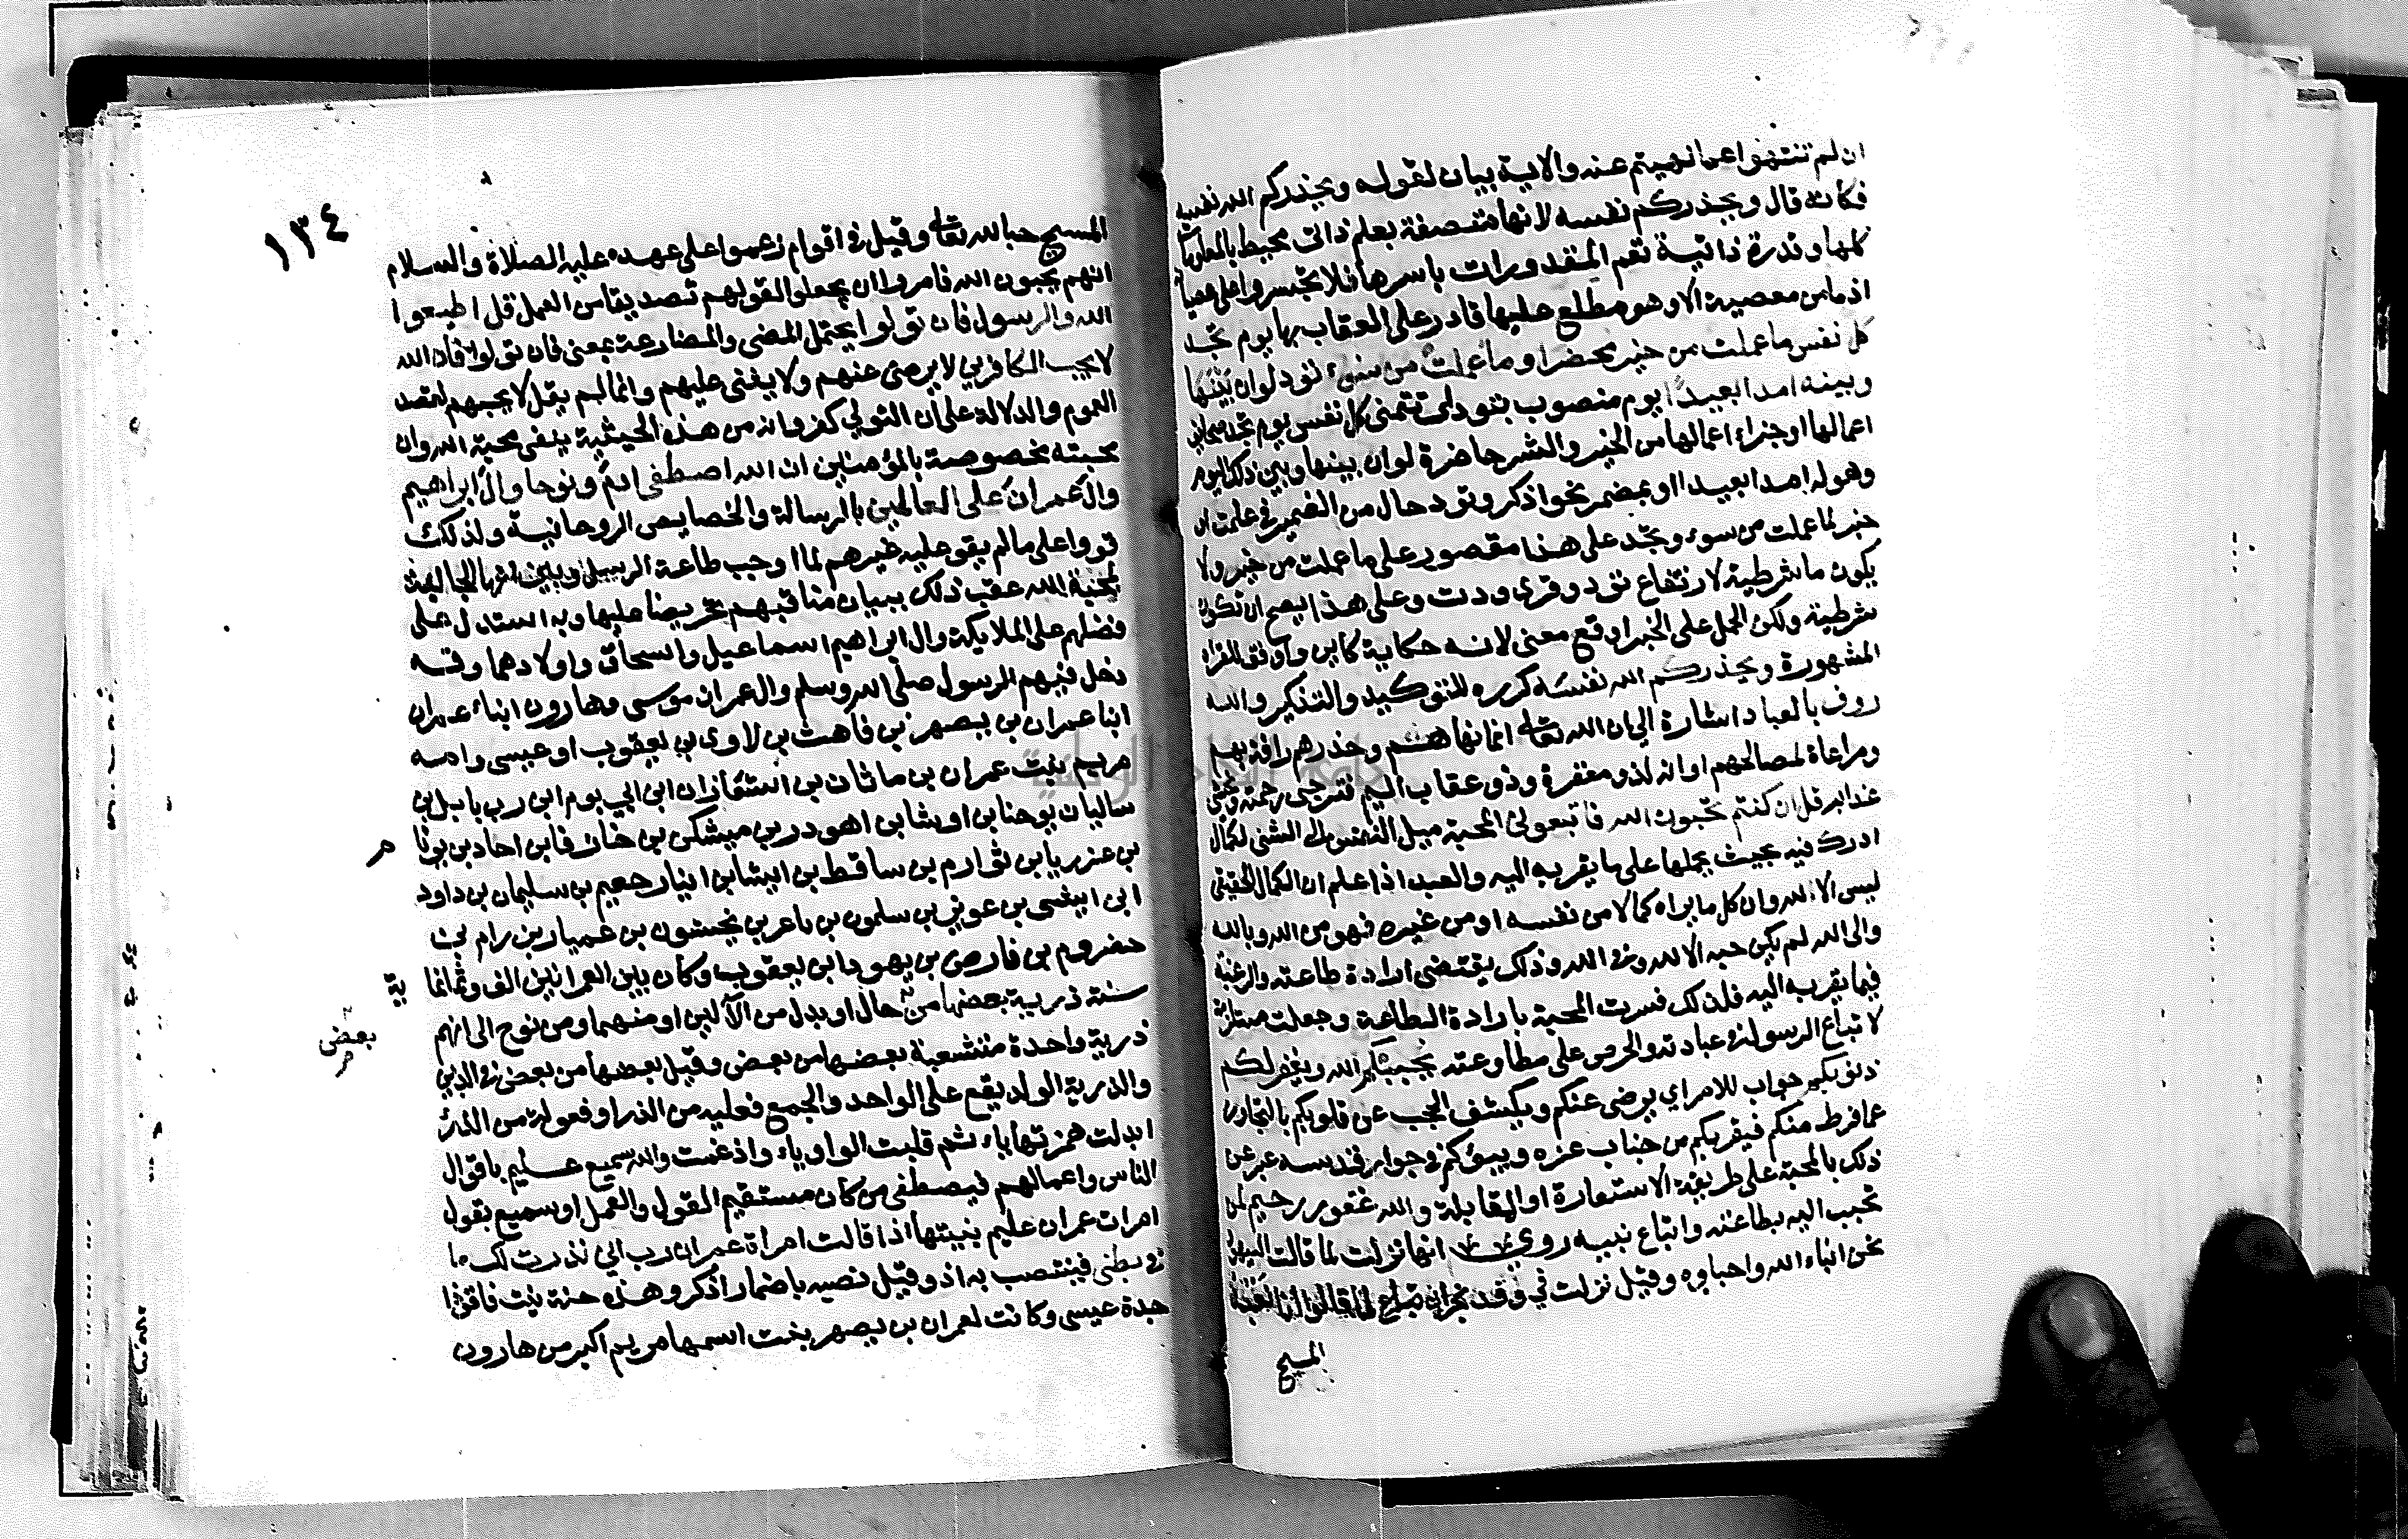 ان لم تنتهوا عما نهيتم عنه والاية بيان لقوله ويحذركم الله نفسه
فكانه قال ويحذركم نفسه لانها متصفة بعلم ذاتي محيط بالمعلومات
كلها وقدرة ذاتية تعم المقدورات باسرها فلا تجسروا على عصيانه
اذ ما من معصية الا وهو مطلع عليها قادر على العقاب بها يوم تجد
كل نفس ما عملت من خير محضرا وما عملت من سوء تود لوان بينها
وبينه امدا بعيدا يوم منصوب بتود اي تتمنى كل نفس يوم تجد صحائف
اعمالها او جزاء اعمالها من الخير والشر حاضرة لوان بينها وبين ذلك اليوم
وهوله امدا بعيدا او بمضمر نحو اذكر وتود حال من الضمير في عملت او
خبر لما عملت من سوء وتجد على هذا مقصور على ما عملت من خير ولا
يكون ما شرطية لارتفاع تود وقرى ودت وعلى هذا يصح ان تكون
شرطية ولكن الحمل على الخبر اوقع معنى لانه حكاية كاين واوفق للقراة
المشهورة ويحذركم الله نفسه كرره للتوكيد والتذكير والله
روف بالعباد اشارة الى ان الله تعالى انما نهاهم وحذرهم رافة بهم
ومراعاة لمصالحهم او انه لذو مغفرة وذو عقاب اليم فترجى رحمته ويخشى
عذابه قل ان كنتم تحبون الله فاتبعوني المحبة ميل النفس الى الشئ لكمال
ادرك فيه بحيث يحملها على ما يقربه اليه والعبد اذا علم ان الكمال الحقيقي
ليس الا لله وان كل ما يراه كمالا من نفسه او من غيره فهو من الله وبالله
والى الله لم يكن حبه الا لله وفي الله وذلك يقتضى ارادة طاعته والرغبة
فيما يقربه اليه فلذلك فسرت المحبة بارادة الطاعة وجعلت مستلزمة
لاتباع الرسول في عبادته والحرص على مطاوعته يحببكم الله ويغفر لكم
ذنوبكم جواب للامر اي يرضى عنكم ويكشف الحجب عن قلوبكم بالتجاوز
عما فرط منكم فيقربكم من جناب عزه ويبوئكم في جوار قدسه عبر عن
ذلك بالمحبة على طريقة الاستعارة او المقابلة والله غفور رحيم لمن
تحبب اليه بطاعته واتباع نبيه روي انها نزلت لما قالت اليهود
نحن ابناء الله واحباوه وقيل نزلت في وفد نجران لما قالوا انا نعبد
المسيح
١٣٤
المسيح حبا لله تعالى وقيل في اقوام زعموا على عهده عليه الصلاة والسلام
انهم يحبون الله فامروا ان يجعلوا لقولهم تصديقا من العمل قل اطيعوا
الله والرسول فان تولوا يحتمل المضى والمضارعة بمعنى فان تولوا فان الله
لا يحب الكافرين لا يرضى عنهم ولا يثنى عليهم وانما لم يقل لا يحبهم لقصد
العموم والدلالة على ان التولي كفر وانه من هذه الحيثية ينفى محبة الله وان
محبته مخصوصة بالمؤمنين ان الله اصطفى ادم ونوحا وال ابراهيم
وال عمران على العالمين بالرسالة والخصايص الروحانية ولذلك
قووا على مالم يقو عليه غيرهم لما اوجب طاعة الرسل وبين انها الجالبة
لمحبة الله عقب ذلك ببيان مناقبهم تحريضا عليها وبه استدل على
فضلهم على الملايكة وال ابراهيم اسماعيل واسحاق واولادهما وقد
دخل فيهم الرسول صلى الله وسلم وال عمران موسى وهارون ابناء عمران
ابنا عمران بن يصهر بن فاهث بن لاوى بن يعقوب او عيسى وامه
مريم بنت عمران بن ماثان بن اشعازان ابن ابي يوم ابن رب بابل بن
ساليان بن يوحنا بن اوشا بن اهودر بن ميشكن بن خان فابن احاد بن يونا
م
بن عزريا بن ثوارم بن ساقط بن ايشا بن انيا رحعيم بن سليمان بن داود
ابن ايشى بن عويز بن سلمون بن باعر بن يخشون بن عميار بن رام بن
حضروم بن فارص بن يهودا بن يعقوب وكان بين العمرانين الف وثمانما
ية
سنة ذرية بعضها من حال او بدل من الآلين او منهما ومن نوح اى انهم
بعض
ذرية واحدة متشعبة بعضها من بعض وقيل بعضها من بعض في الدين
والذرية الولد يقع على الواحد والجمع فعلية من الذر او فعولة من الذرء
ابدلت همزتها ياء ثم قلبت الواو ياء وادغمت والله سميع عليم باقوال
الناس واعمالهم فيصطفى من كان مستقيم القول والعمل او سميع بقول
امرات عمران عليم بنيتها اذا قالت امراة عمران رب اني نذرت لك ما
في بطنى فينتصب به اذ وقيل نصبه باضمار اذكر وهذه حنة بنت فاقوذا
جدة عيسى وكانت لعمران بن يصهر بنت اسمها مريم اكبر من هارون